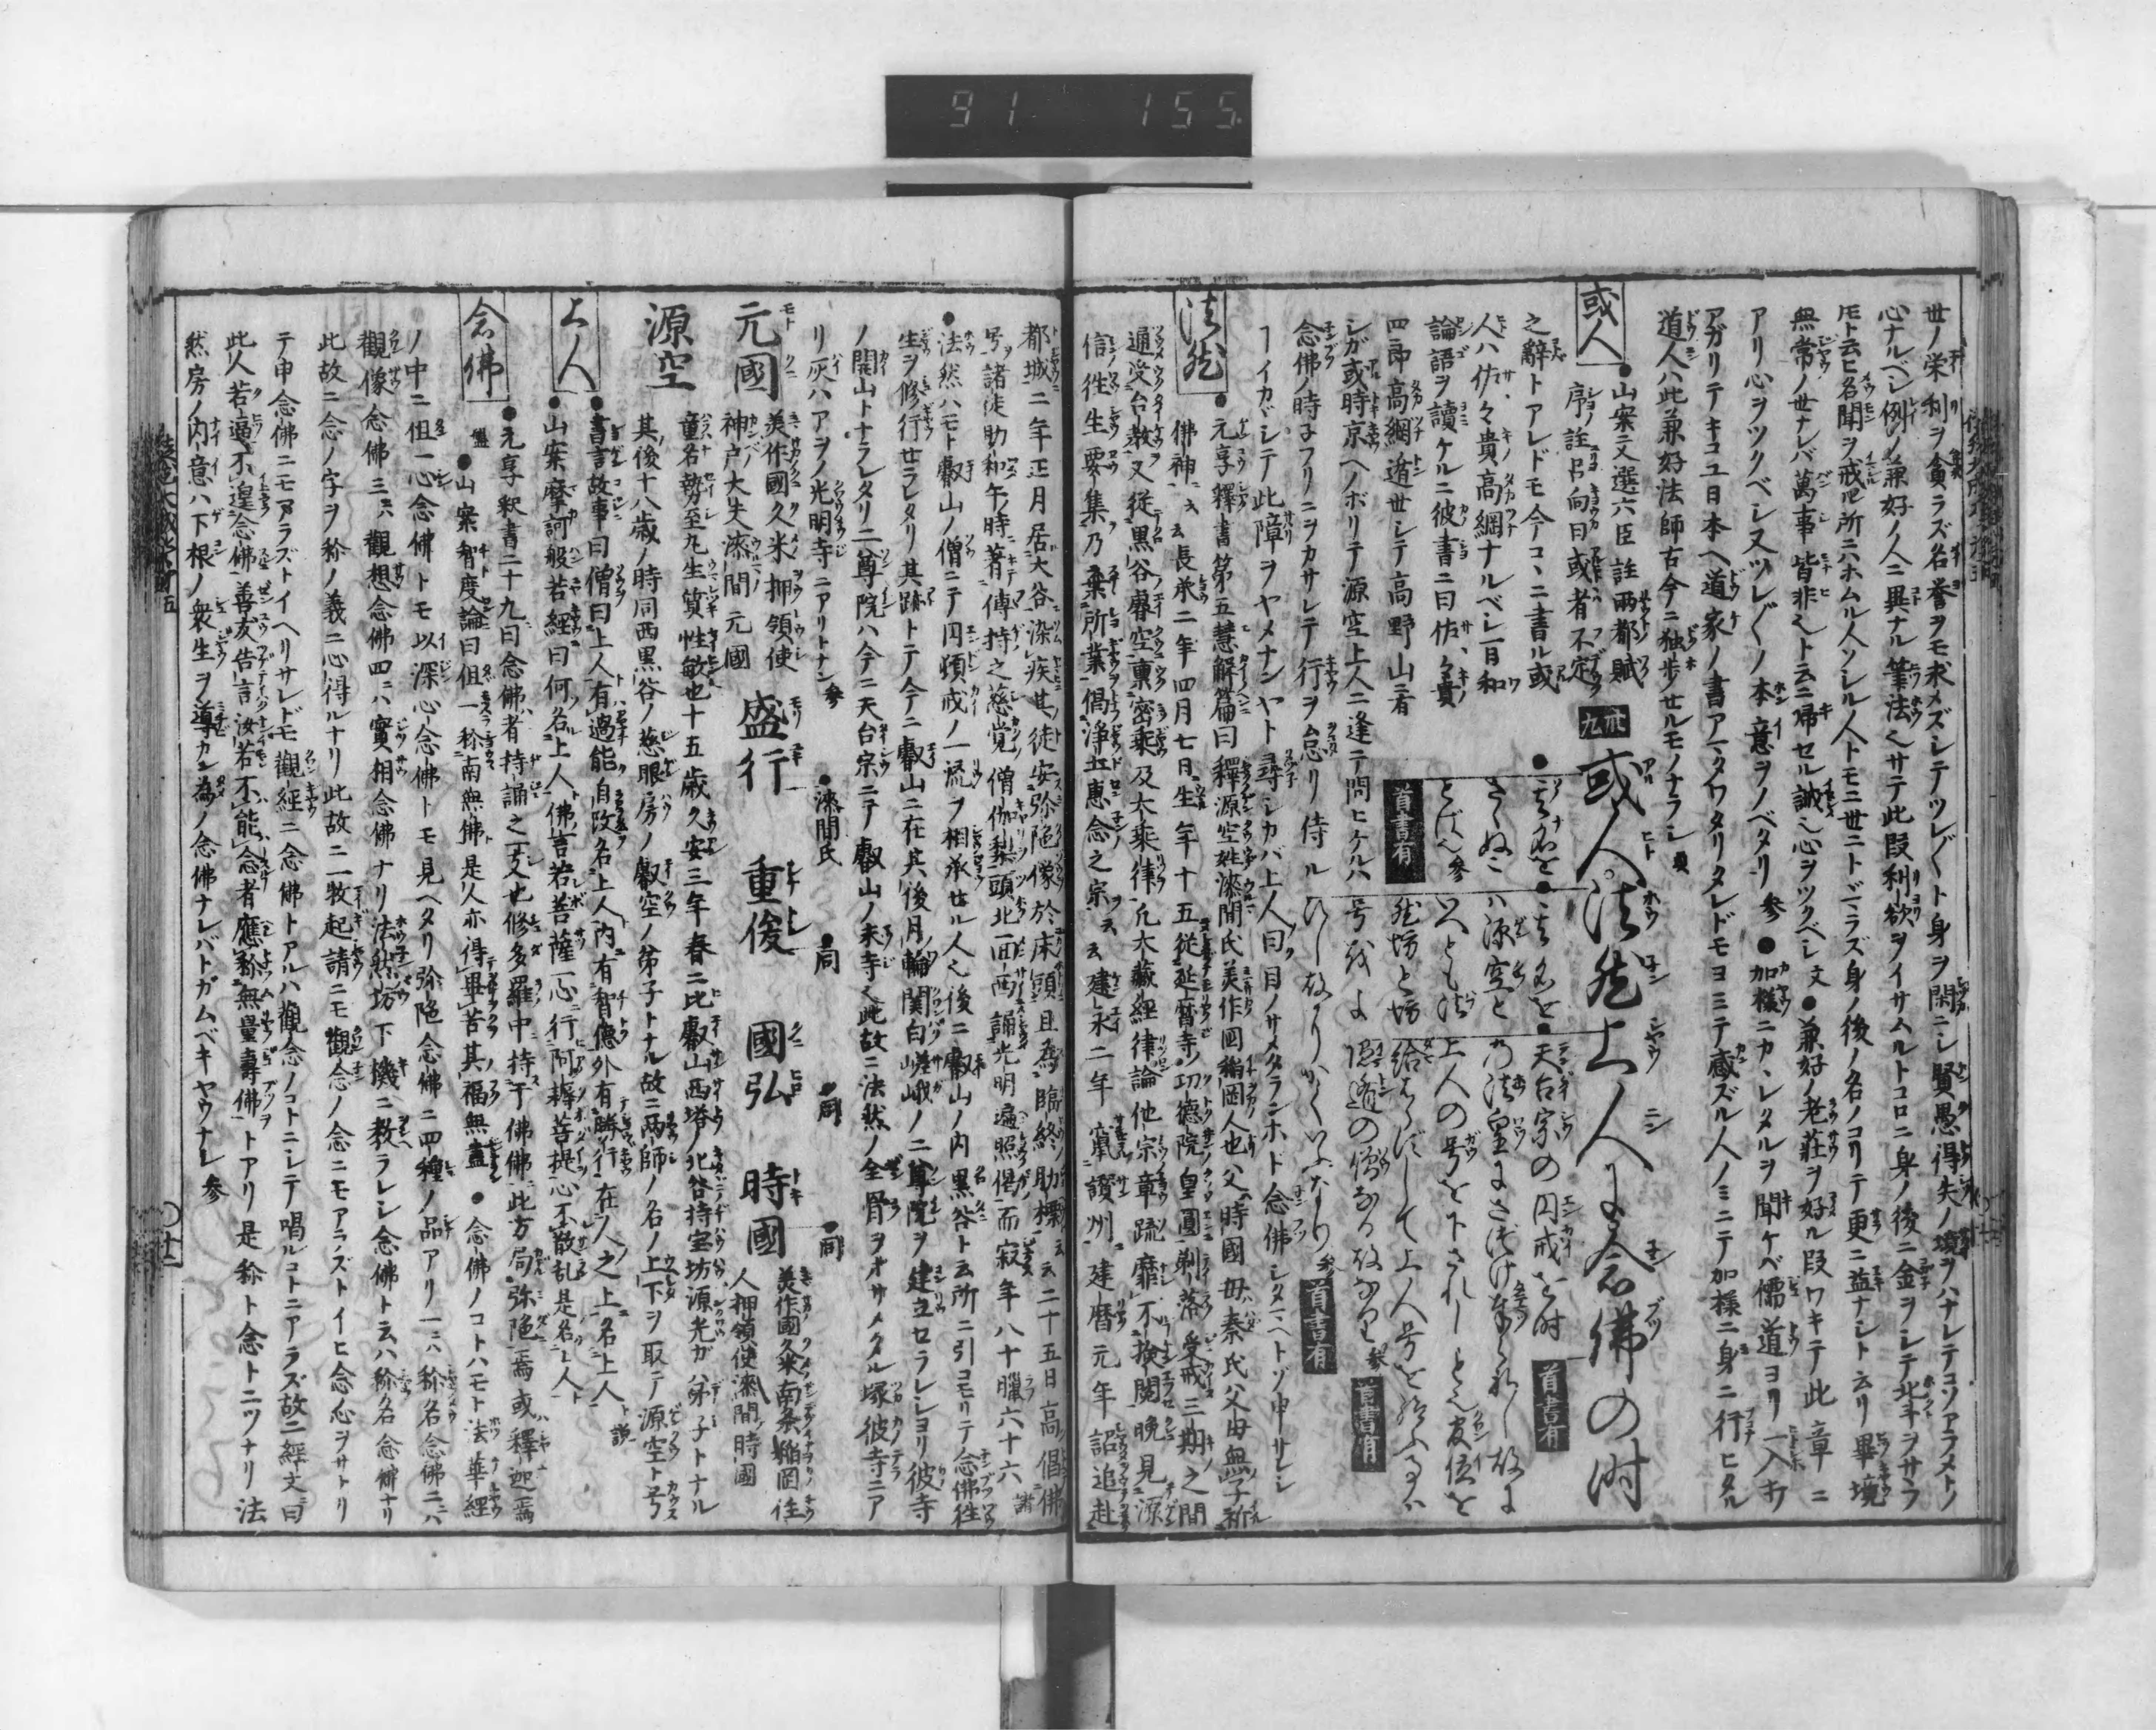 91 155
世ノ栄利ヲ貪ラズ名誉ヲモ求メズシテツレ〴〵ト身ヲ閑ニシ賢愚得失ノ境ヲハナレテコソアラメトノ
心ナルベシ例ノ兼好ノ人ニ異ナル筆法也サテ此段利欲ヲイサムルトコロニ身ノ後ニ金ヲシテ北斗ヲサヽフ
トモト云ヒ名聞ヲ戒ル所ニハホムル人ソシル人トモニ世ニトヾマラズ身ノ後ノ名ノコリテ更ニ益ナシト云リ畢境
無常ノ世ナレバ萬事皆非也ト云ニ帰セル誠也心ヲツクベシ文●兼好ノ老荘ヲ好ル段ワキテ此章ニ
アリ心ヲツクベシ又ツレ〴〵ノ本意ヲノベタリ 参●加様ニカヽレタルヲ聞ケバ儒道ヨリ一入オ
アガリテキコユ日本ヘ道家ノ書アマタワタリタレドモヨミテ蔵ズル人ノミニテ加様ニ身ニ行ヒタル
道人ハ此兼好法師古今ニ独歩ノセルモノナラシ
或人
●山案文選六臣註兩都賦
序ノ註呂向曰或者不定
之辭トアレドモ今コヽニ書ル或
人ハ佐々貴高綱ナルベシ一日和
論語ヲ讀ケルニ彼書ニ曰佐々貴
四郎高綱遁世シテ高野山ニ有
シガ或時京ヘノボリテ源空上人ニ逢テ問ヒケルハ
念佛ノ時子フリニヲカサレテ行ヲ怠リ侍ル
ーイカヾシテ此障ヲヤメナンヤト尋シカバ上人曰目ノサメタランホド念佛シタマヘトゾ申サレシ
卅九
或人法然上人に念佛の時
首書有
●法名を
ハ源空と
いへとも法
然坊と坊
号或よ
●天台宗の円戒を時
乃法皇にさづけ奉られし故に
上人の号を下されしと也
首書有
首書有
首書有
法然
●元亨釋書第五慧解篇曰釋源空姓漆間氏美作國稲岡人也父時國母秦氏父母無子祈
佛神云云長承二年四月七日生年十五從延暦寺功德院皇圓剃落受戒三期之間
通受台教又從黒谷睿空稟密乘及大乘律凡大藏經律論他宗章疏靡不撿閲晩見源
信徃生要集乃棄所業倡淨土惠念之宗云云建永二年竄讃州建暦元年詔追赴
都城二年正月居大谷染疾其徒安弥陀像於床頭且為臨終助標云云二十五日高倡佛
号諸徒助和午時著傳持之慈覚僧伽梨頭北面西誦光明遍照偈而寂年八十臘六十六 諸
●法然ハモト叡山ノ僧ニテ円頓戒ノ一流ヲ相承セル人也後ニ叡山ノ内黒谷ト云所ニ引コモリテ念佛徃
生ヲ修行せラレタリ其跡トテ今ニ叡山ニ在其後月輪関白嵯峨ノ二尊院ヲ建立セラレシヨリ彼寺
ノ開山トナラレタリ二尊院ハ今ニ天台宗ニテ叡山ノ末寺也此故ニ法然ノ全骨ヲオサメタル塚彼寺ニア
リ灰ハアヲノ光明寺ニアリトナン 参
●漆間氏 ●同 ●同 ●同
元國 美作國久米押領使神戸大夫漆間元國
盛行 重俊 國弘 時國 美作國久米南条稲岡住人押領使漆間時國
源空
童名勢至丸生質性敏也十五歳久安三年春ニ比叡山西塔ノ北谷持宝坊源光ガ弟子トナル
其後十八歳ノ時同西黒谷ノ慈眼房ノ叡空ノ弟子トナル故ニ两師ノ名ノ上下ヲ取テ源空ト号
上人
●書言故事曰僧曰上人有過能自改名上人内有智德外有勝行在人之上名上人
●山案摩訶般若經曰何名上人佛言若菩薩一心行阿耨菩提心不散乱是名上人
念佛
●元亨釈書二十九曰念佛者持誦之一支也修多羅中持于佛佛此方局弥陀焉或釋迦焉
●山案智度論曰但一称南無佛是人亦得畢苦其福無盡 ●念佛ノコトハモト法華經
ノ中ニ但一心念佛トモ以深心念佛トモ見ヘタリ弥陀念佛ニ四種ノ品アリ一ニハ称名念佛二ニハ
觀像念佛三ニハ觀想念佛四ニハ實相念佛ナリ法然坊下機ニ教ラレシ念佛ト云ハ称名念佛ナリ
此故ニ念ノ字ヲ称ノ義ニ心得ルナリ此故ニ一枚起請ニモ觀念ノ念ニモアラズトイヒ念心ヲサトリ
テ申念佛ニモアラズトイヘリサレドモ觀經ニ念佛トアルハ觀念ノコトニシテ唱ルコトニアラズ故ニ經文曰
此人若逼不遑念佛善友告言汝若不能念者應称無量壽佛トアリ是称ト念トニツナリ法
然房ノ内意ハ下根ノ衆生ヲ導カン為ノ念佛ナレバトガムベキヤウナシ 参